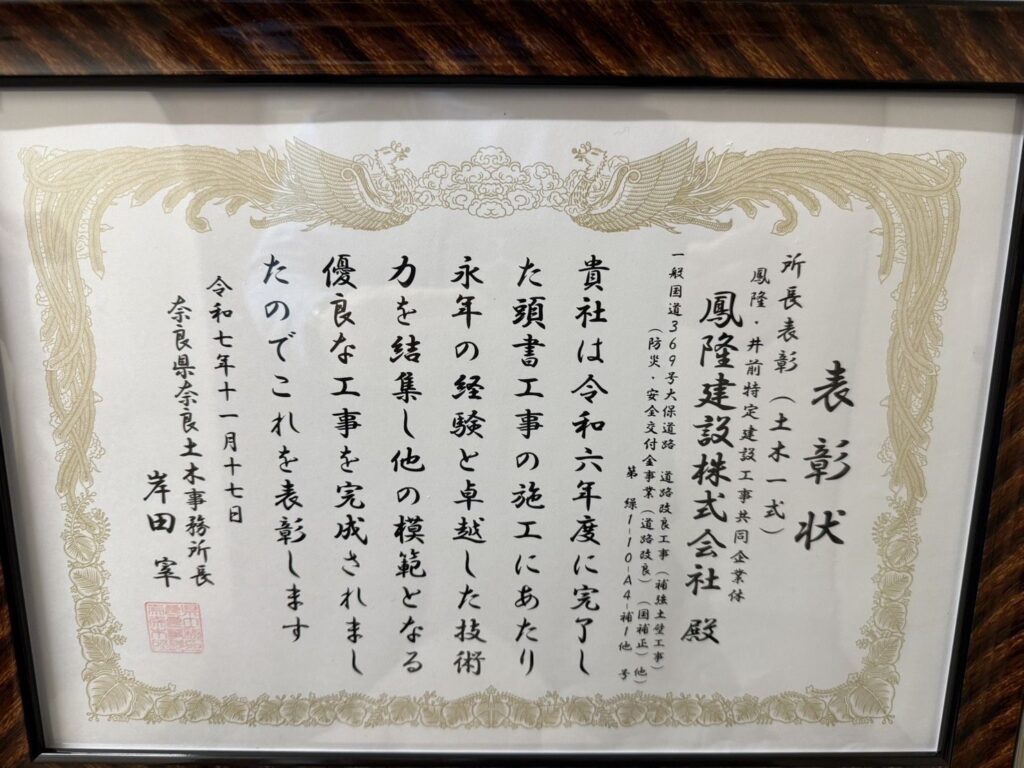 表彰状
所長表彰(土木一式)
鳳隆・井前特定建設工事共同企業体
鳳隆建設株式会社 殿
一般国道369号大保道路 道路改良工事(補強土壁工事)
(防災・安全交付金事業(道路改良)(国補正)他)
第 緑1-10-A4-補1他 号
貴社は令和六年度に完了し
た頭書工事の施工にあたり
永年の経験と卓越した技術
力を結集し他の模範となる
優良な工事を完成されまし
たのでこれを表彰します
令和七年十一月十七日
奈良県奈良土木事務所長
岸田 宰